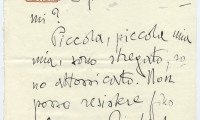 mi?
Piccola, piccola mia
mia, sono stregato, so
no attossicato. Non
posso resistere fino